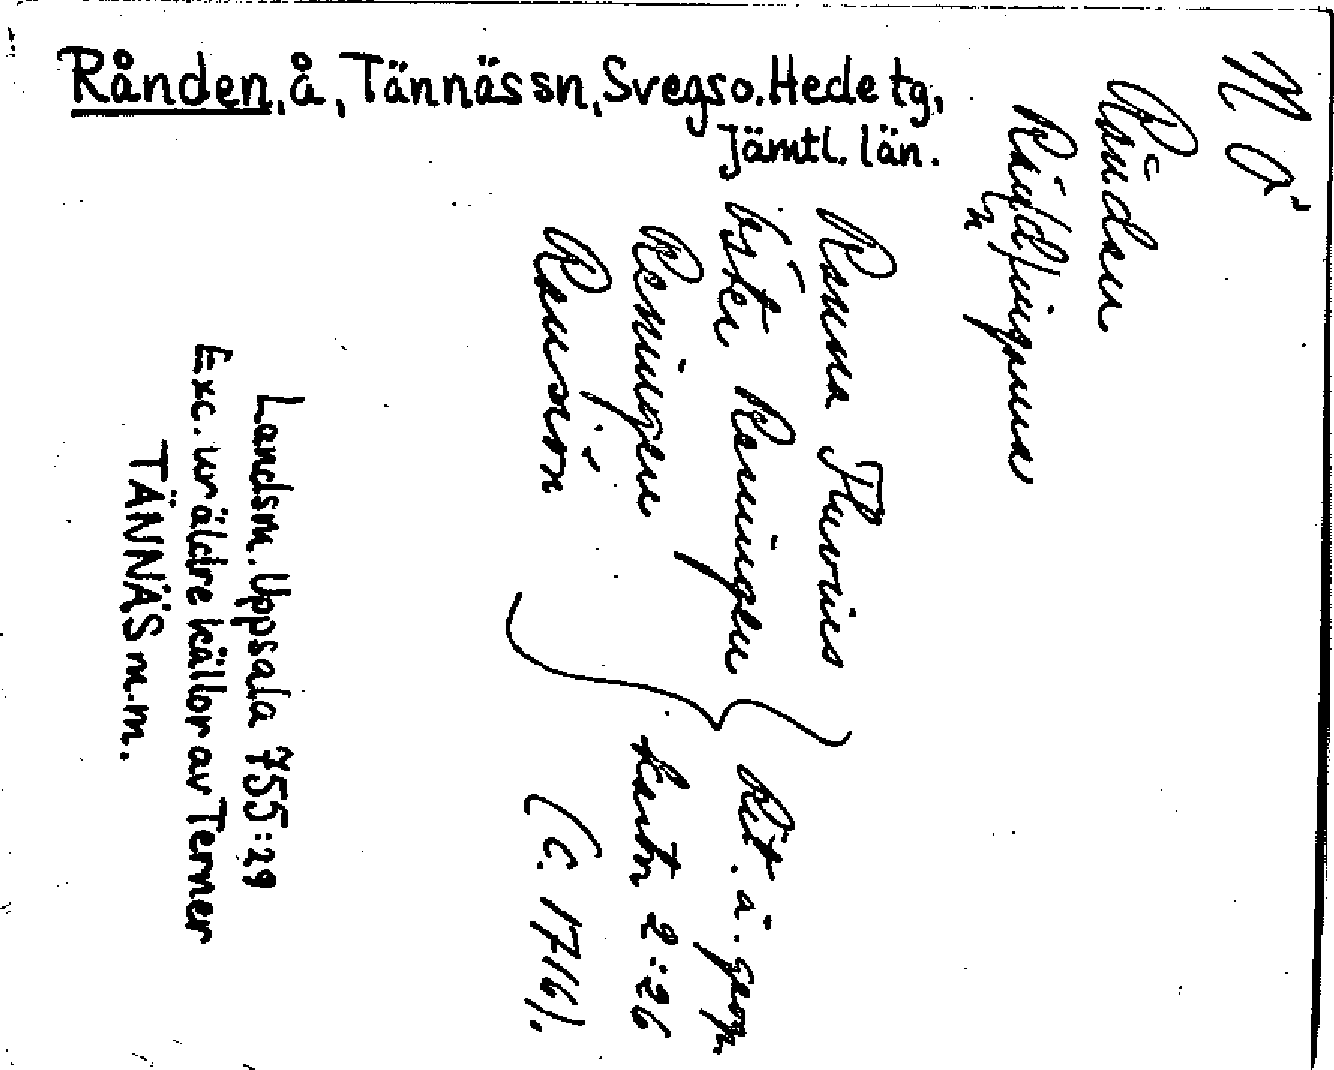 Rånden, å, Tännäs sn, Svegs o. Hede tg,
Jämtl. län.
N Ö
Rånden
Rån(d)ingarna
n
Ramna Fluvius
öster Ramingen
Remingen
Ramsiön
Rit. ä. geogr.
kartn 2:26
(c. 1716).
Landsm. Uppsala 755:29
Exc. ur äldre källor av Terner
TÄNNÄS m.m.